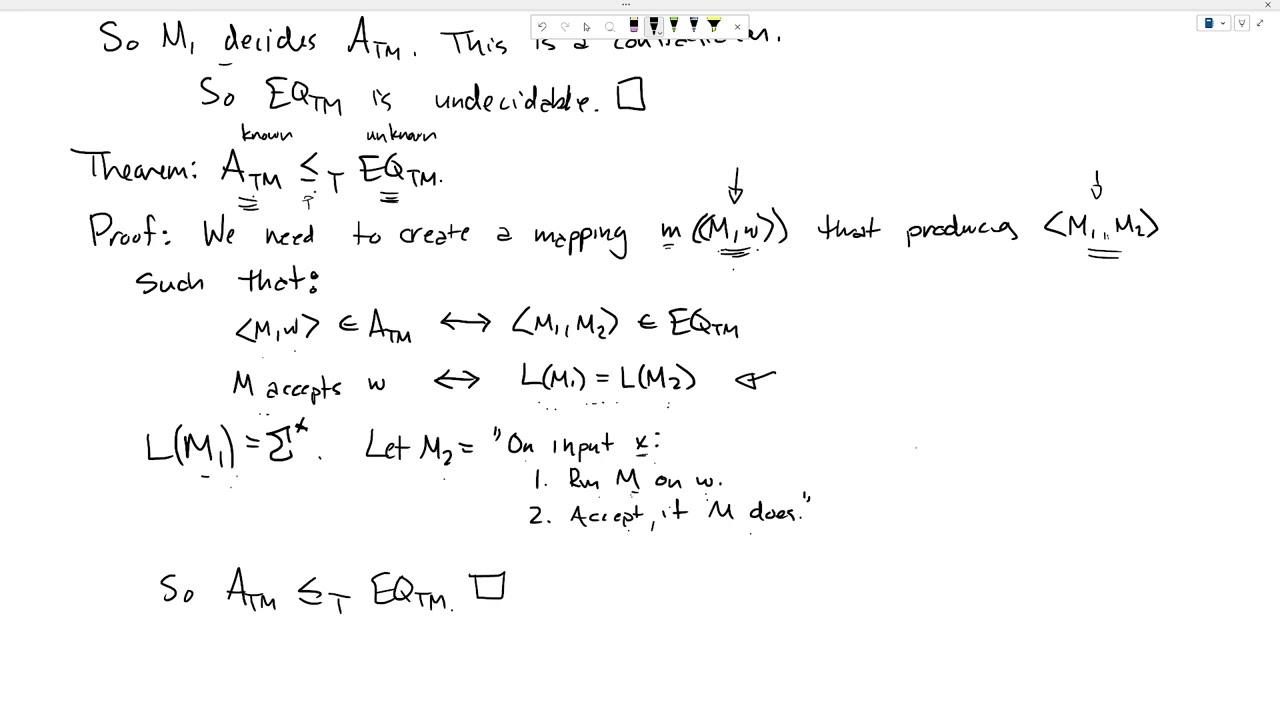 So M₁ decides A_TM. This is a
So EQ_TM is undecidable. □
known unknown
Theorem: A_TM ≤_T EQ_TM.
Proof: We need to create a mapping m(⟨M,w⟩) that produces ⟨M₁, M₂⟩
Such that:
⟨M,w⟩ ∈ A_TM ⟷ ⟨M₁, M₂⟩ ∈ EQ_TM
M accepts w ⟷ L(M₁) = L(M₂)
L(M₁) = Σ*. Let M₂ = "On input x:
1. Run M on w.
2. Accept, if M does."
So A_TM ≤_T EQ_TM. □